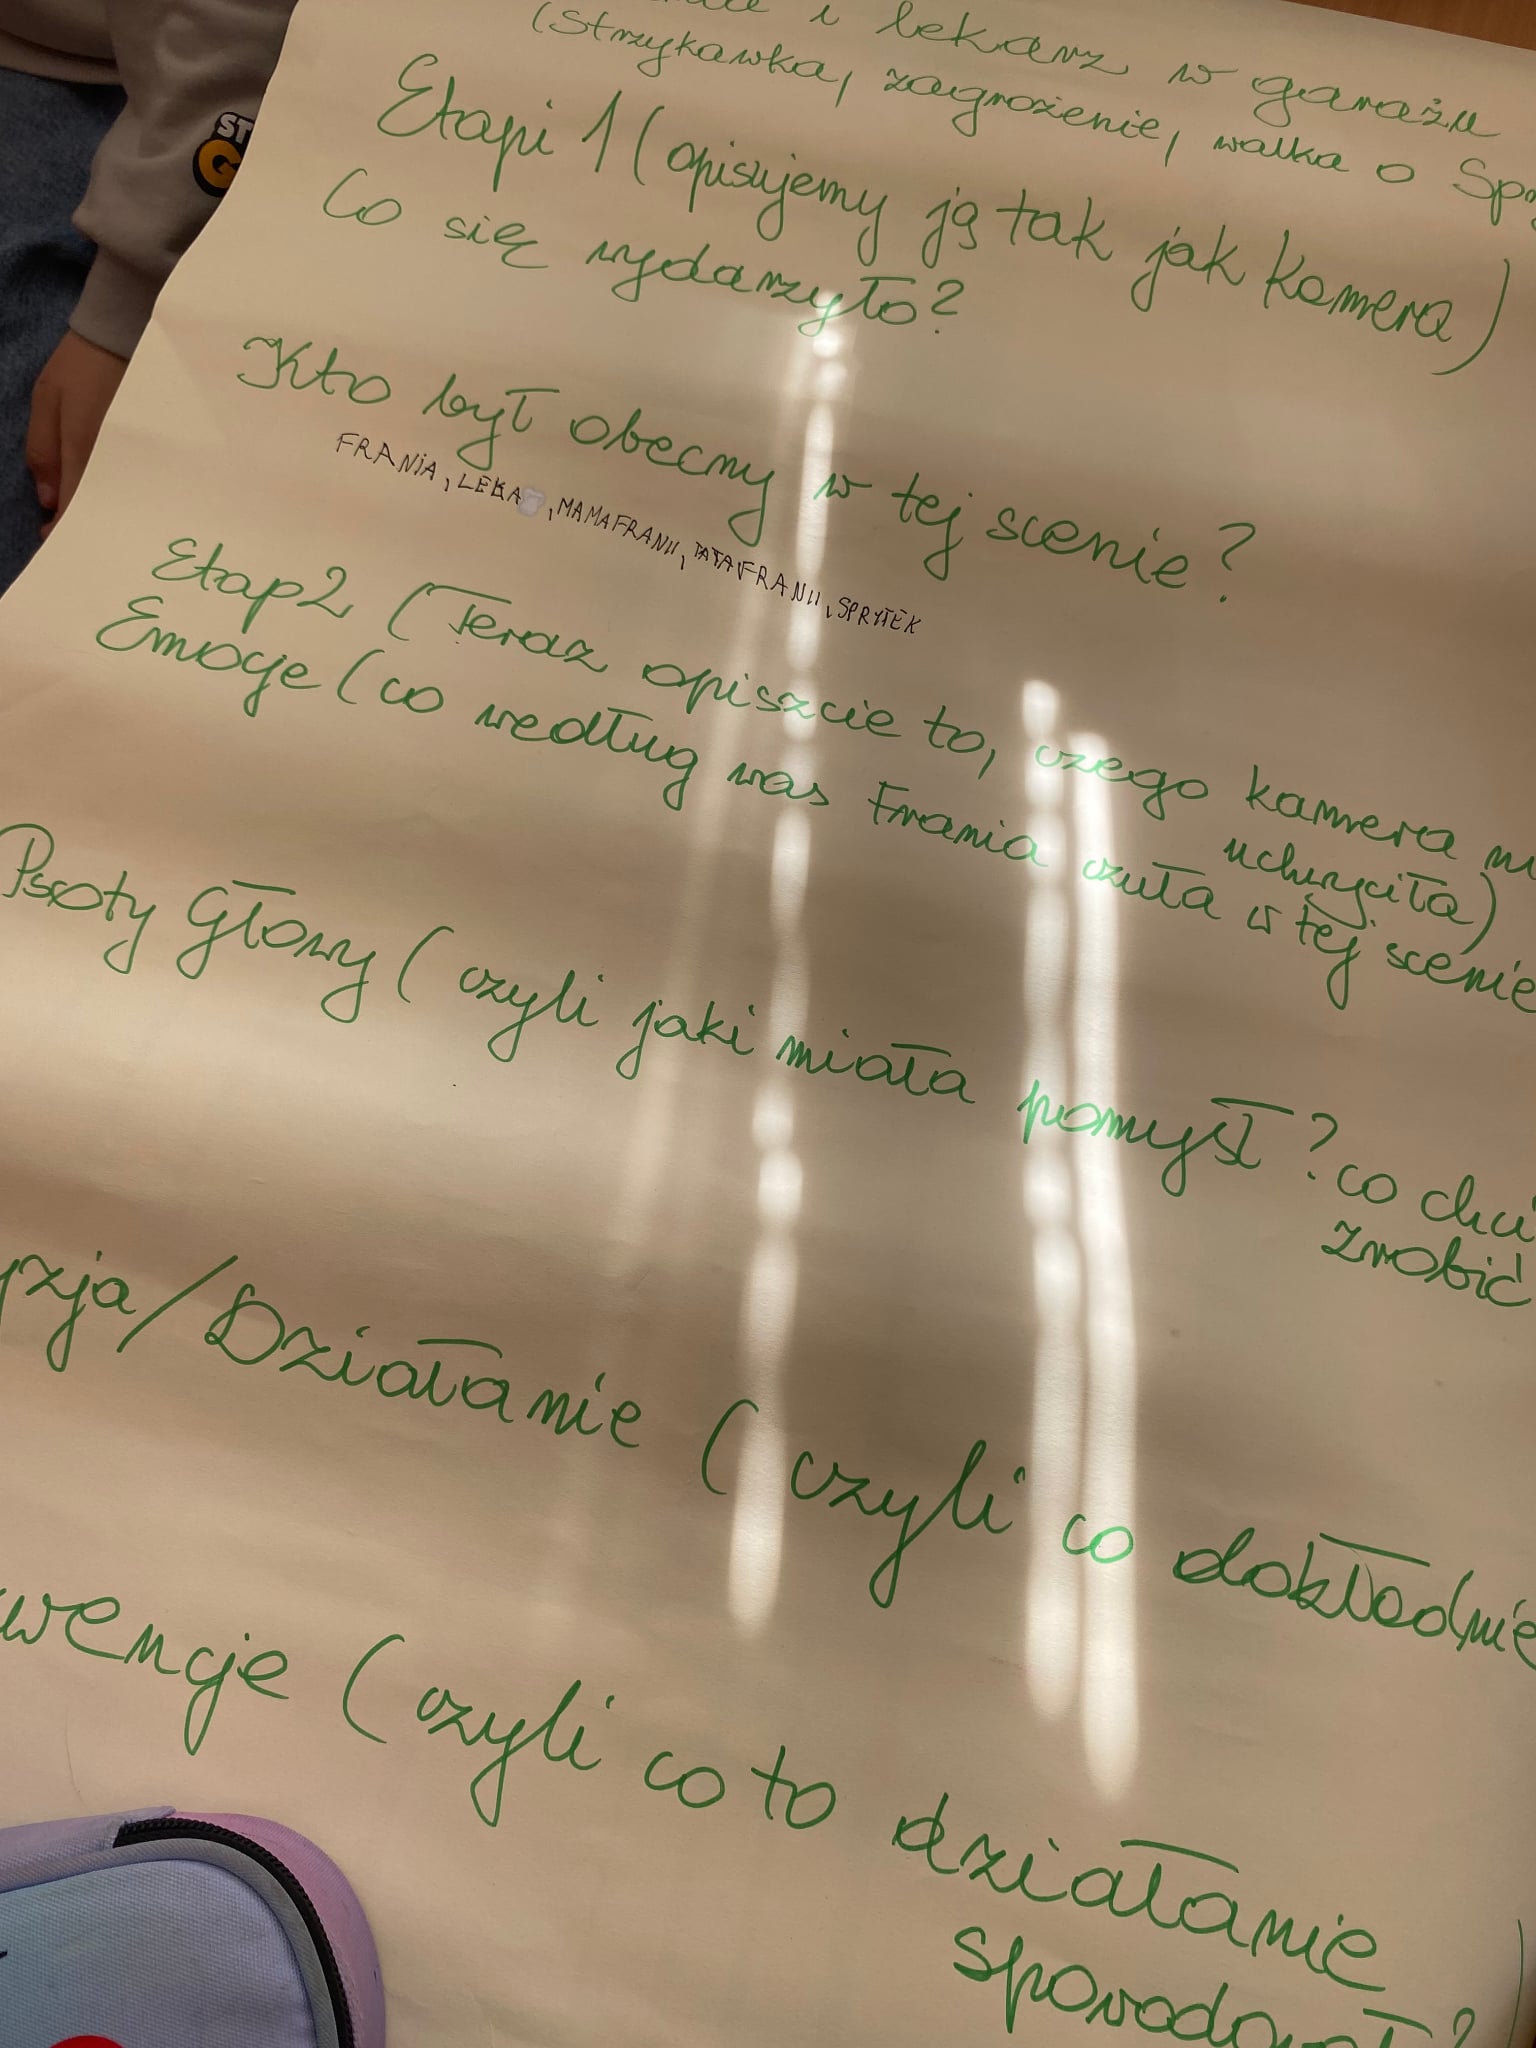 i lekarz w garażu
(Strzykawka, zagrożenie, walka o Spry
Etapi 1 (opisujemy ją tak jak kamera)
Co się wydarzyło?
Kto był obecny w tej scenie?
FRANIA, LEKA , MAMA FRANII, TATA FRANII, SPRYTEK
Etap 2 (Teraz opiszcie to, czego kamera ni
uchwyciła)
Emocje (co według was Frania czuła w tej scenie
Psoty Głowy (czyli jaki miała pomysł? co chci
zrobić
yzja/Działanie (czyli co dokładnie
wencje (czyli co to działanie
spowodował?
ST
G